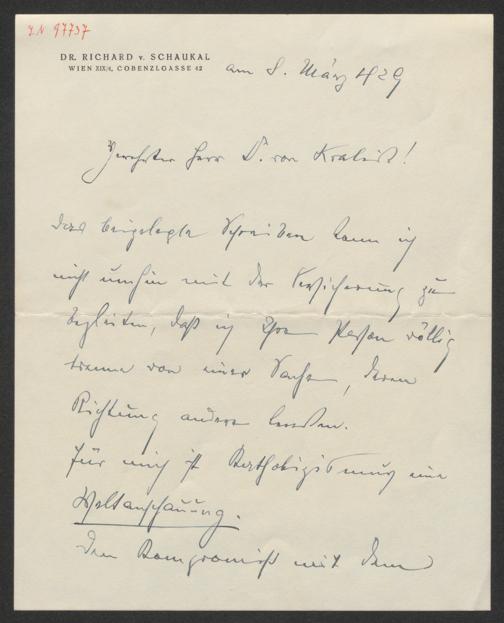 I.N. 97737
DR. RICHARD v. SCHAUKAL
WIEN XIX/1, COBENZLGASSE 42
am 8. März 929
Verehrter Herr Dr. von Kralik!
Das beigelegte Schreiben kann ich
nicht umhin mit der Versicherung zu
begleiten, daß ich Ihre Person völlig
trenne von einer Sache, deren
Richtung andere
Für mich ist Katholizismus eine
Weltanschauung.
Den Kompromiß mit dem